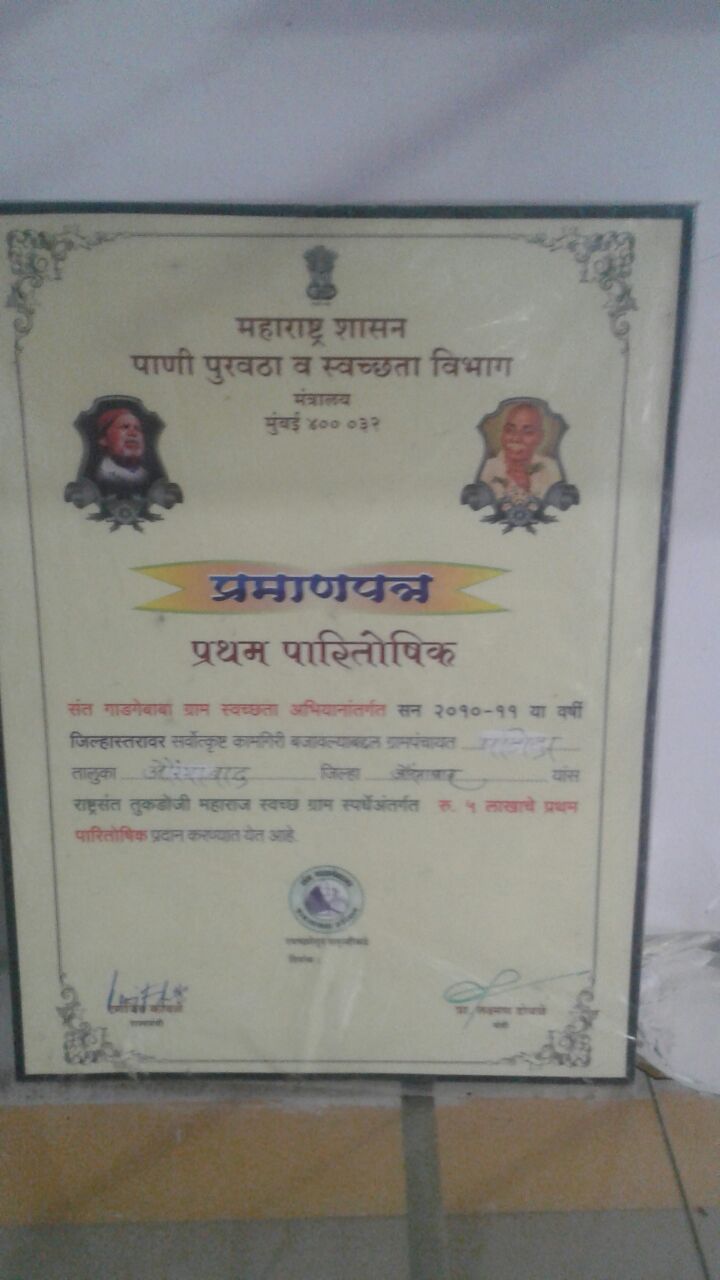 महाराष्ट्र शासन
पाणी पुरवठा व स्वच्छता विभाग
मंत्रालय
मुंबई ४०० ०३२
प्रमाणपत्र
प्रथम पारितोषिक
संत गाडगेबाबा ग्राम स्वच्छता अभियानांतर्गत सन २०१०-११ या वर्षी
जिल्हास्तरावर सर्वोत्कृष्ट कामगिरी बजावल्याबद्दल ग्रामपंचायत
तालुका औरंगाबाद जिल्हा औरंगाबाद यांस
राष्ट्रसंत तुकडोजी महाराज स्वच्छ ग्राम स्पर्धेअंतर्गत रु. ५ लाखाचे प्रथम
पारितोषिक प्रदान करण्यात येत आहे.
दिनांक :
राज्यमंत्री
प्रा. लक्ष्मण ढोबळे
मंत्री